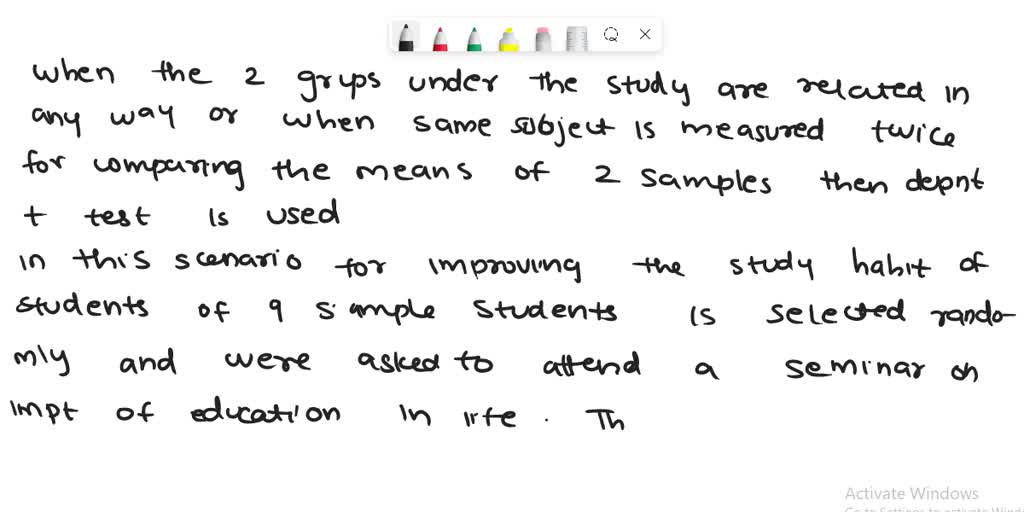 when the 2 grups under the study are related in
any way or when same subject is measured twice
for comparing the means of 2 samples then depnt
t test is used
in this scenario for improving the study habit of
students of 9 sample students is selected rando-
mly and were asked to attend a seminar on
impt of education in life. Th
Activate Windows
Go to Settings to activate Windo